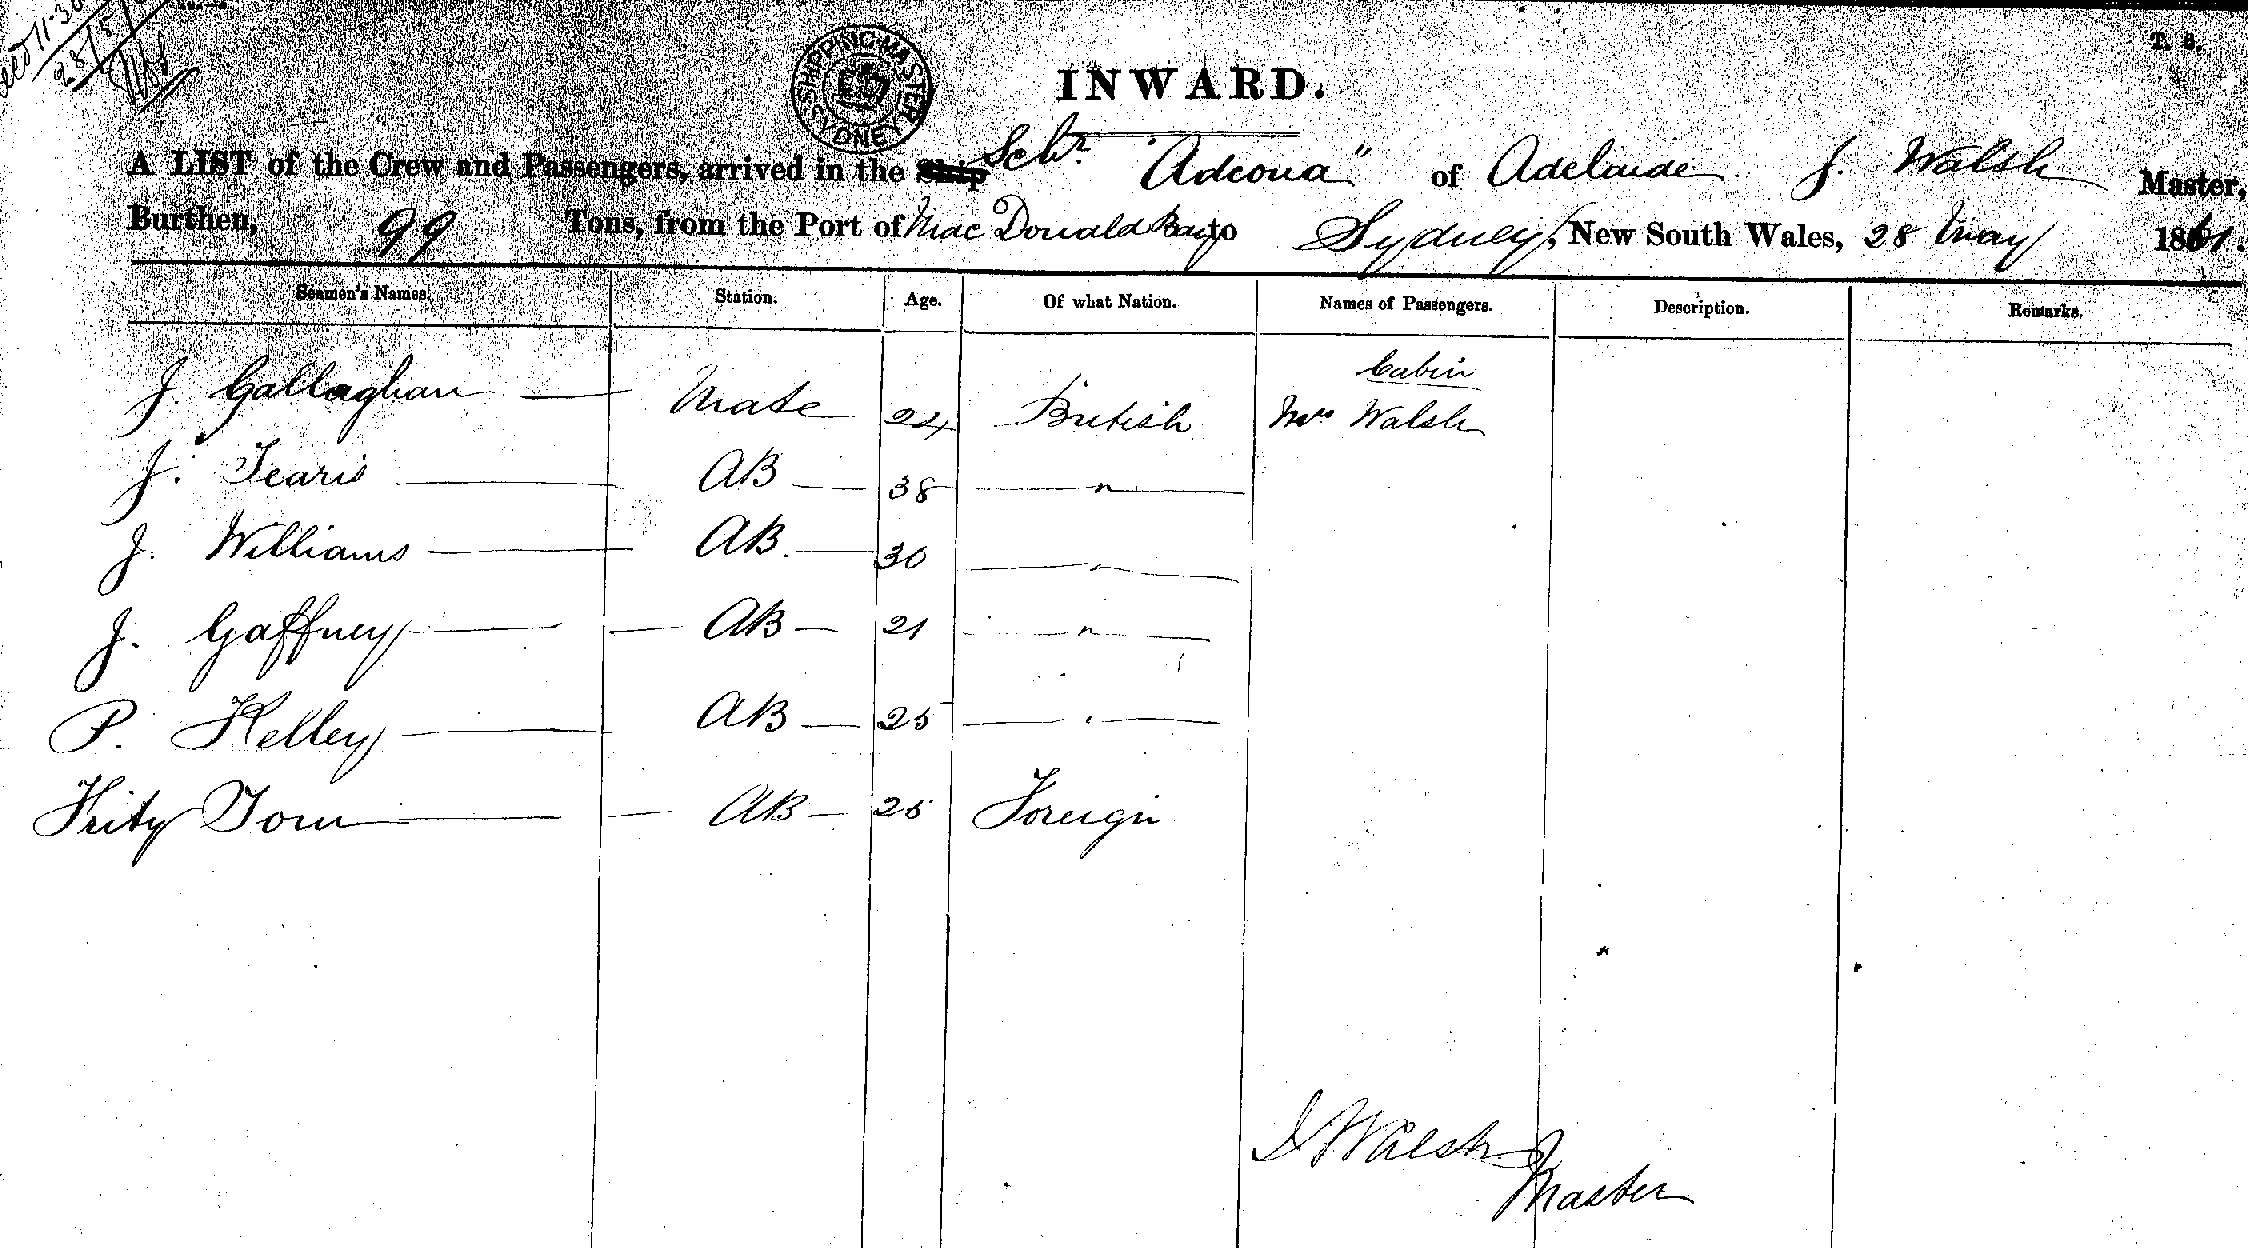 28/5/
T. S.
SHIPPING MASTER SYDNEY
INWARD.
A LIST of the Crew and Passengers, arrived in the Ship Schr "Adeona" of Adelaide J. Walsh Master,
Burthen, 99 Tons, from the Port of Mac Donald Bay to Sydney, New South Wales, 28 May 1861.
Seamen's Names. Station. Age. Of what Nation. Names of Passengers. Description. Remarks.
Cabin
J. Gallaghan Mate 24 British Mrs Walsh
J. Tearis AB 38 "
J. Williams AB 30 "
J. Gaffney AB 21 "
P. Kelley AB 25 "
Tom AB 25 Foreign
J Walsh
Master